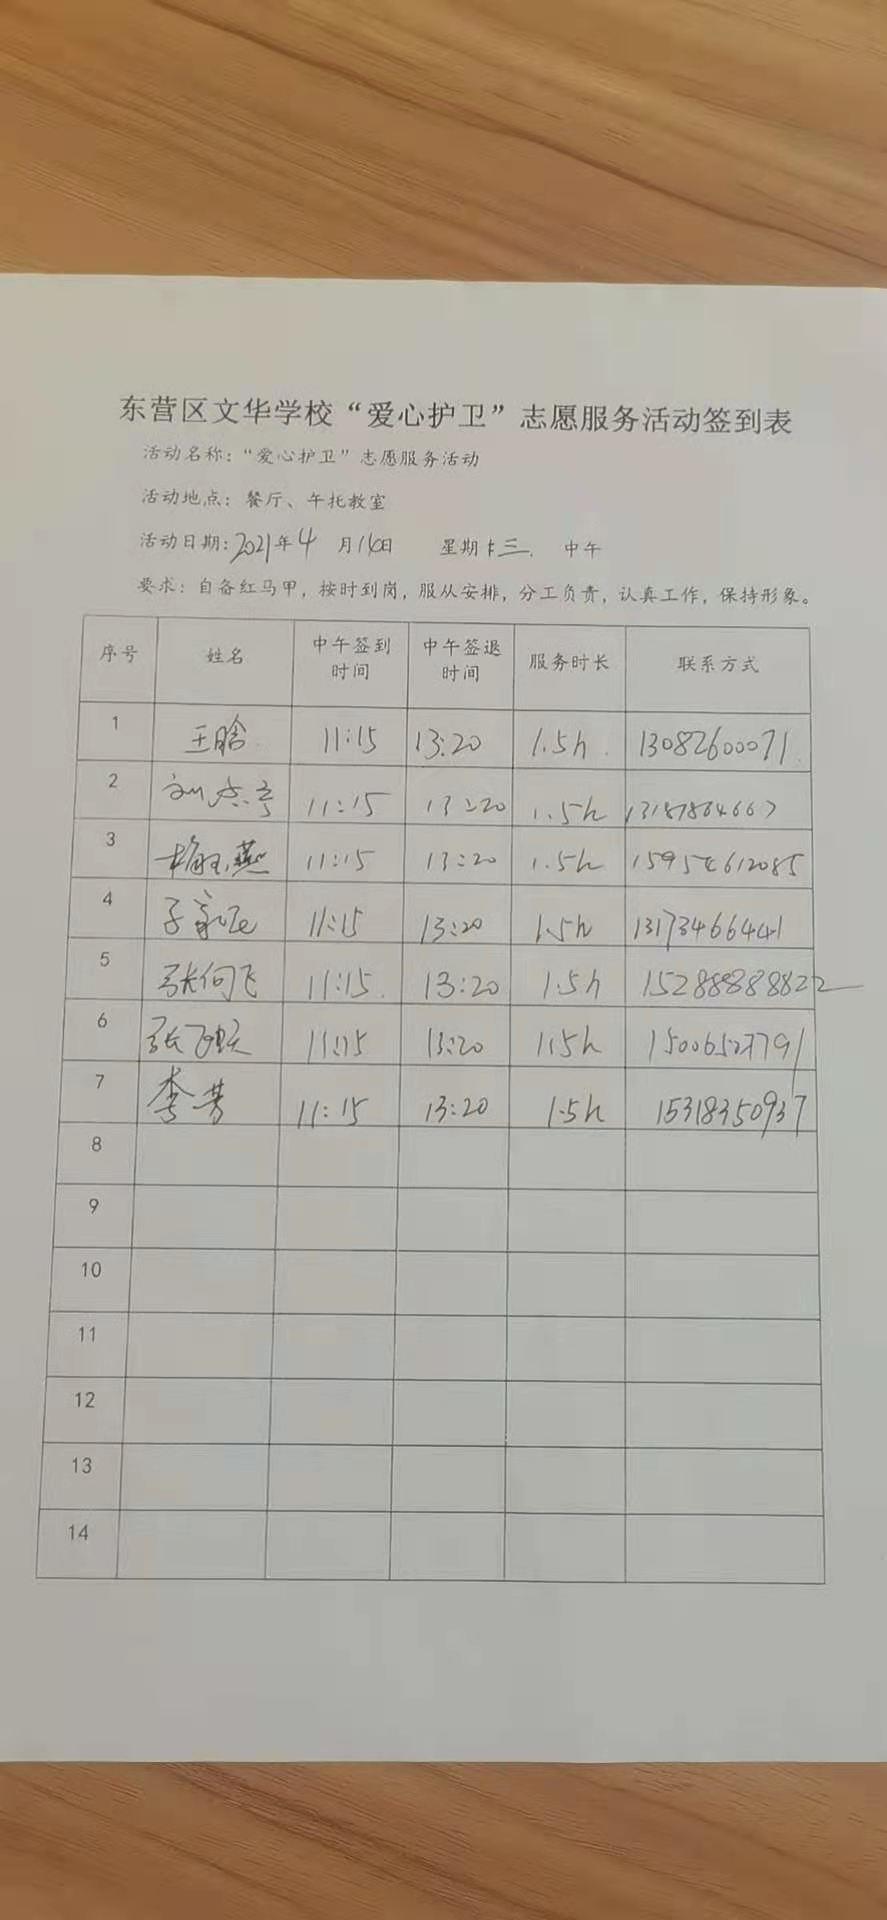 东营区文华学校“爱心护卫”志愿服务活动签到表
活动名称：“爱心护卫”志愿服务活动
活动地点：餐厅、午托教室
活动日期：2021年4月 日 星期三 中午
要求：自备红马甲，按时到岗，服从安排，分工负责，认真工作，保持形象。
序号 姓名 中午签到时间 中午签退时间 服务时长 联系方式
1 王晗 11:15 13:20 1.5h 13082600071
2 11:15 13:20 1.5h
3 11:15 13:20 1.5h 15954612085
4 11:15 13:20 1.5h 13173466441
5 张向飞 11:15 13:20 1.5h 15288888822
6 张 11:15 13:20 1.5h 15006527791
7 李芳 11:15 13:20 1.5h 15318350937
8
9
10
11
12
13
14